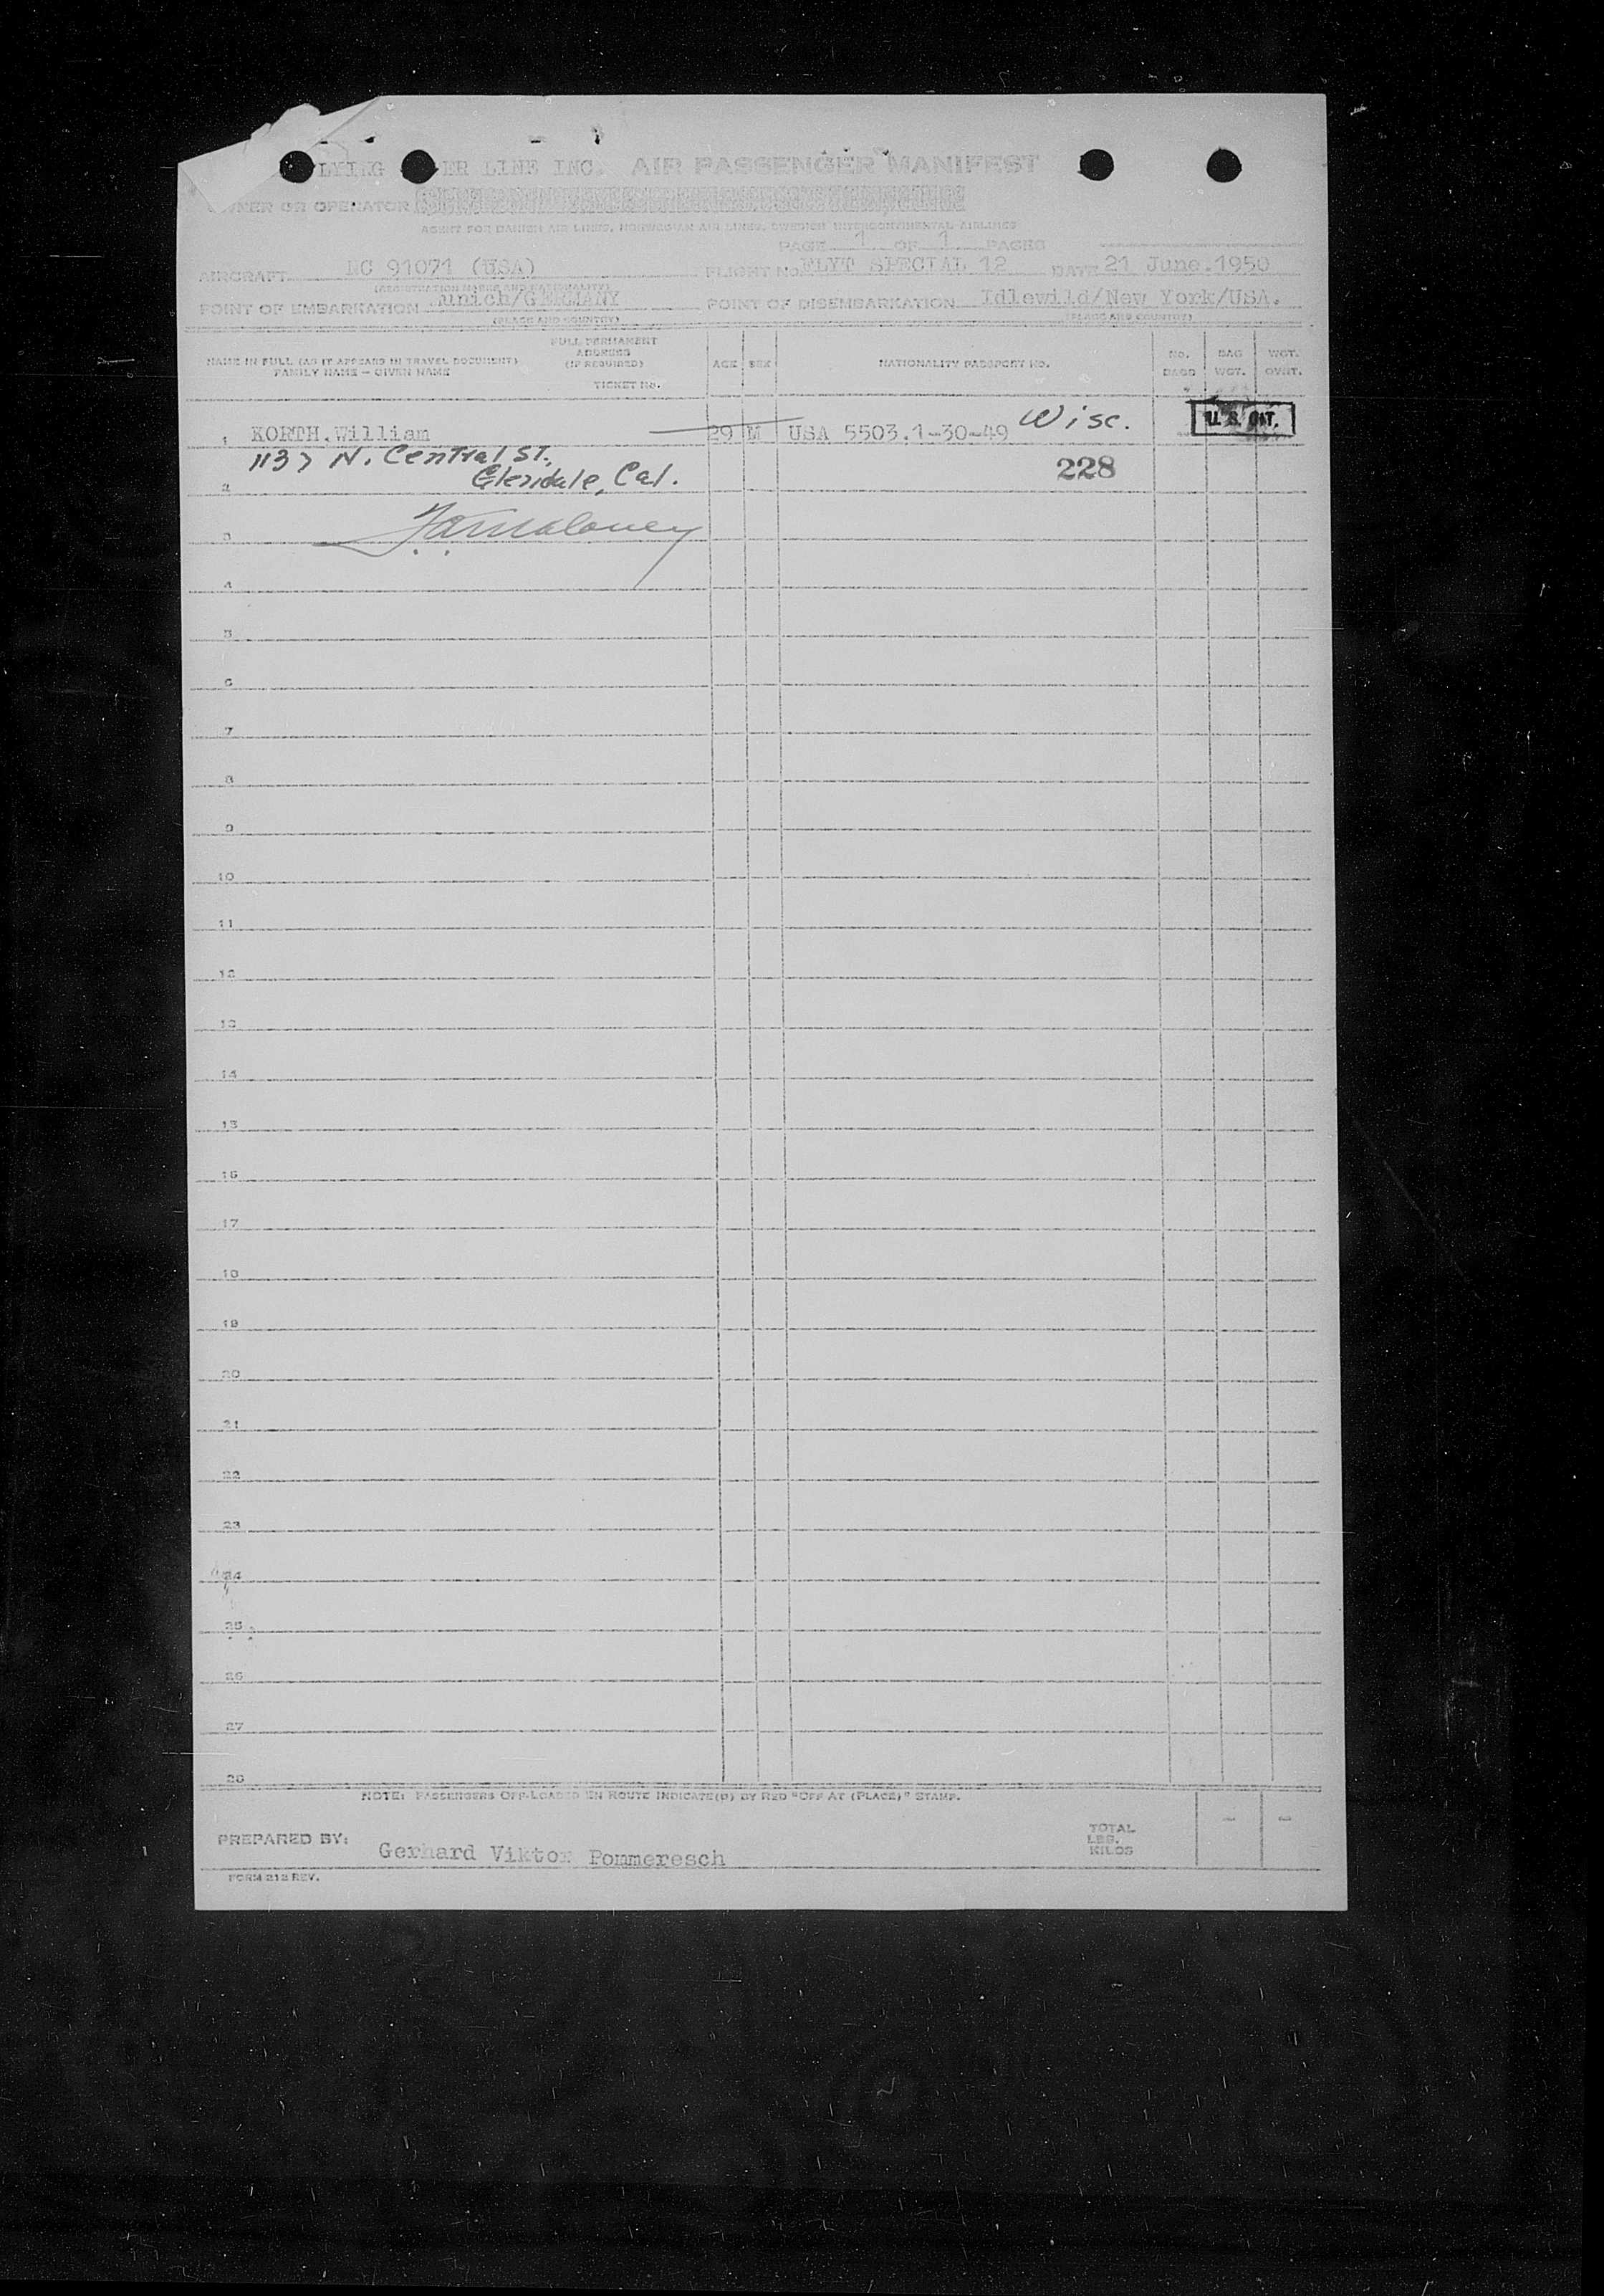 LYING ER LINE INC. AIR PASSENGER MANIFEST
OWNER OR OPERATOR
AGENT FOR DANISH AIR LINES, NORWEGIAN AIR LINES, SWEDISH INTERCONTINENTAL AIRLINES
PAGE 1 OF 1 PAGES
AIRCRAFT 91071 (USA) FLIGHT No FLYT SPECIAL 12 DATE 21 June.1950
(REGISTRATION MARKS AND NATIONALITY)
POINT OF EMBARKATION unich/GERMANY POINT OF DISEMBARKATION Idlewild/New York/USA.
(PLACE AND COUNTRY) (PLACE AND COUNTRY)
NAME IN FULL (AS IT APPEARS IN TRAVEL DOCUMENT) FAMILY NAME – GIVEN NAME
FULL PERMANENT ADDRESS (IF REQUIRED)
TICKET No.
AGE SEX NATIONALITY PASSPORT NO. NO. BAGS BAG WGT. WGT. OVNT.
1 KORTH.William 29 M USA 5503.1-30-49 Wisc. U.S. CIT.
1137 N. Central St.,
2 Glendale, Cal. 228
3 Maloney
4
5
6
7
8
9
10
11
12
13
14
15
16
17
18
19
20
21
22
23
24
25
26
27
28
NOTE: PASSENGERS OFF-LOADED EN ROUTE INDICATE(D) BY RED "OFF AT (PLACE)" STAMP.
PREPARED BY: Gerhard Viktor Pommeresch
TOTAL
LBS.
KILOS
FORM 212 REV.